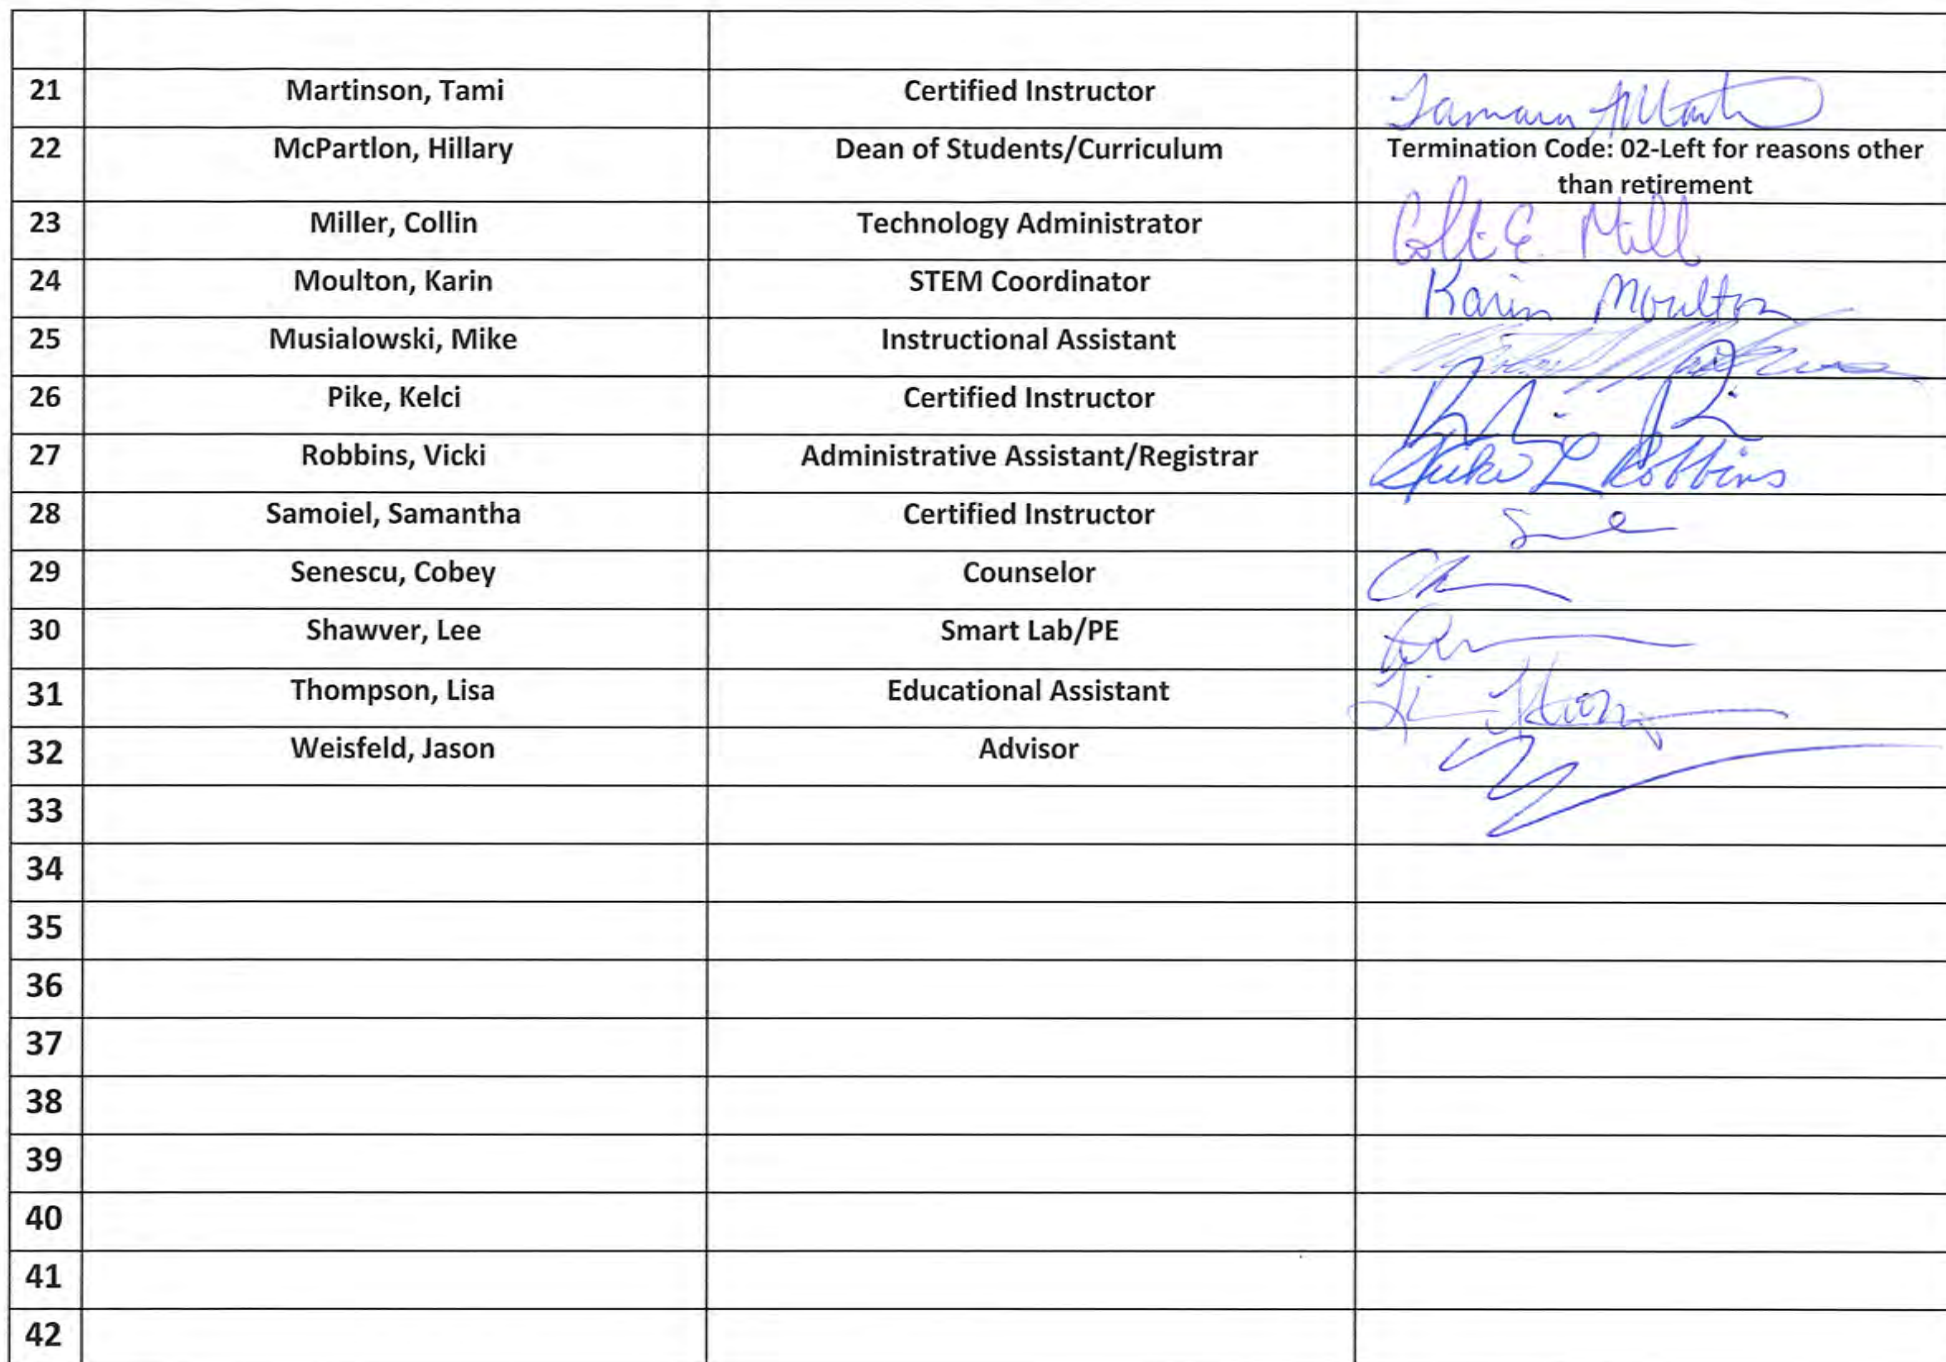 21 Martinson, Tami Certified Instructor Tamara
22 McPartlon, Hillary Dean of Students/Curriculum Termination Code: 02-Left for reasons other
than retirement
23 Miller, Collin Technology Administrator E. Mill
24 Moulton, Karin STEM Coordinator Karin Moulton
25 Musialowski, Mike Instructional Assistant
26 Pike, Kelci Certified Instructor
27 Robbins, Vicki Administrative Assistant/Registrar L Robbins
28 Samoiel, Samantha Certified Instructor
29 Senescu, Cobey Counselor
30 Shawver, Lee Smart Lab/PE
31 Thompson, Lisa Educational Assistant
32 Weisfeld, Jason Advisor
33
34
35
36
37
38
39
40
41
42